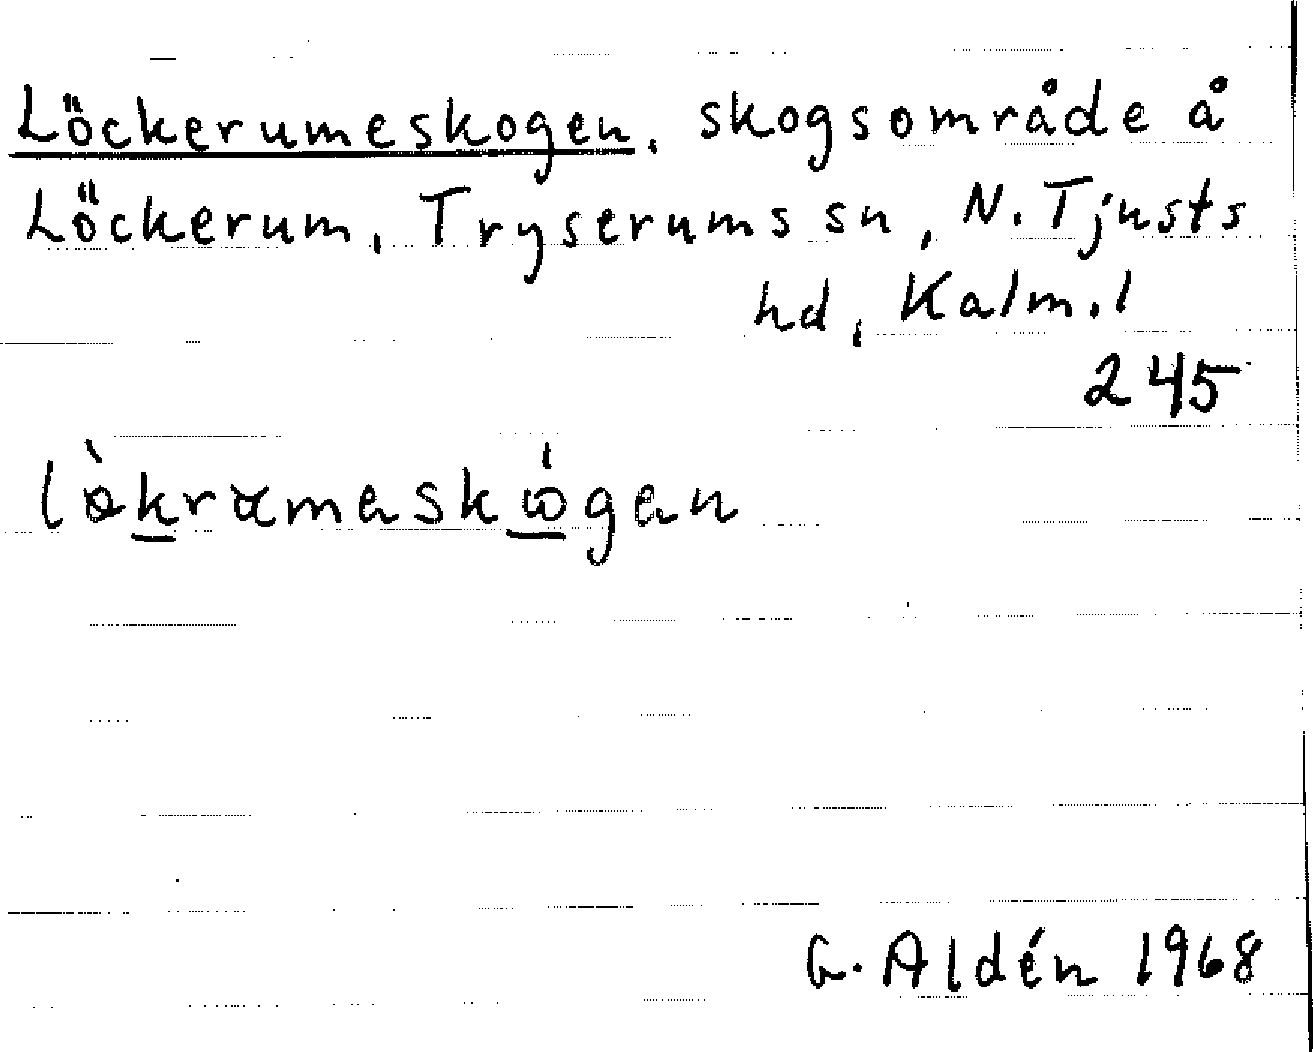 Löckerumeskogen, skogsområde å
Löckerum, Tryserums sn, N. Tjusts
hd, Kalm.l
245
G. Aldén 1968